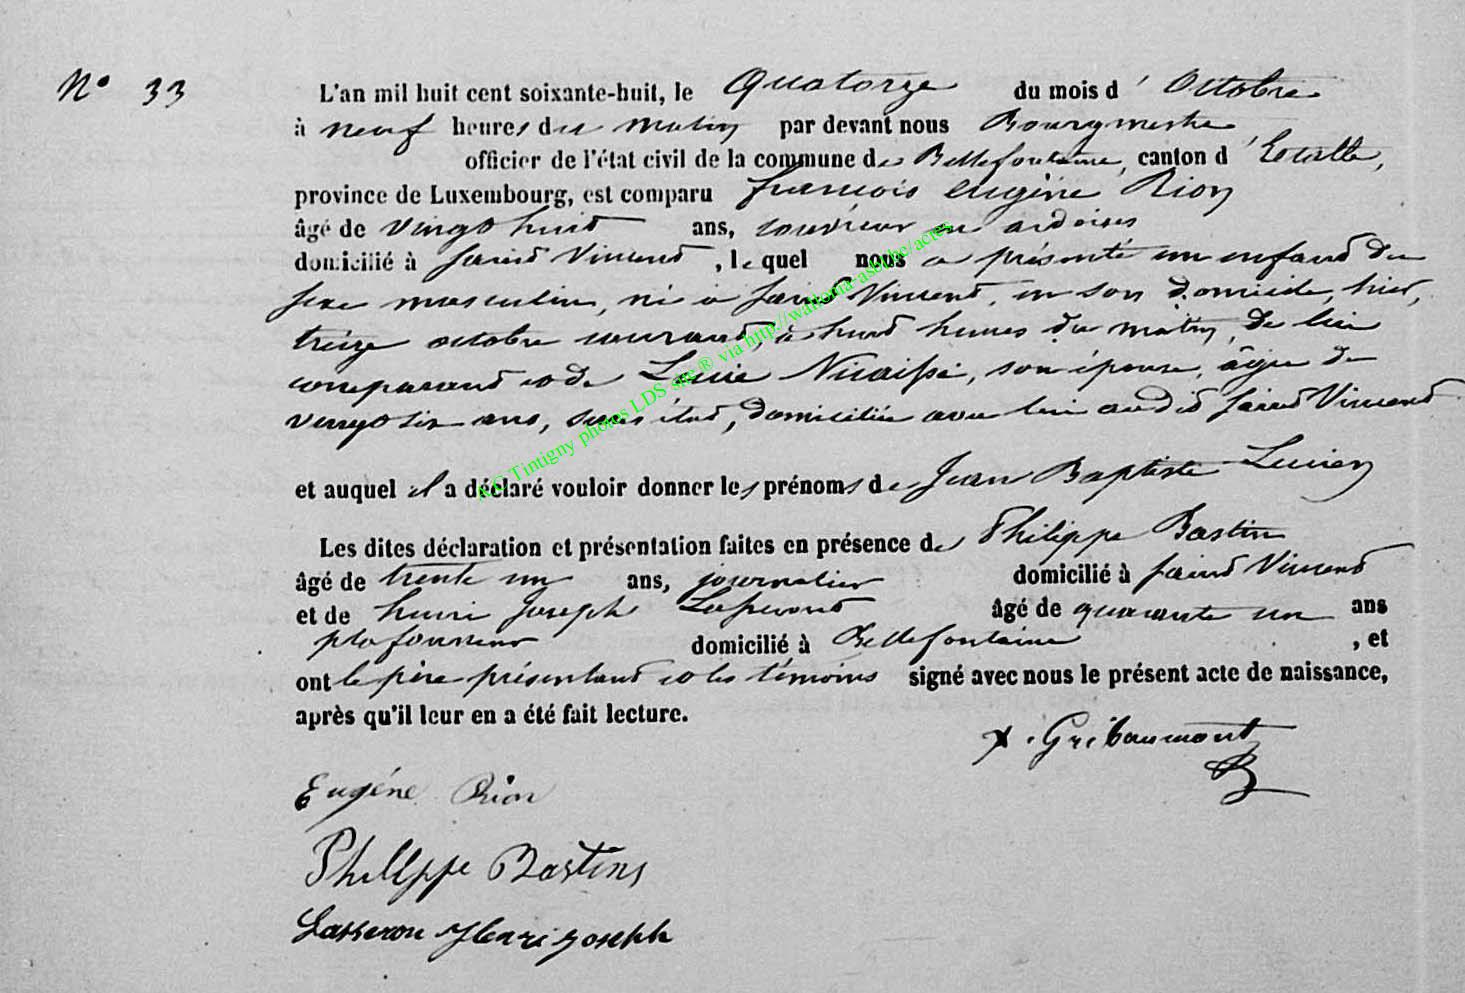 N° 33
L'an mil huit cent soixante-huit, le Quatorze du mois d' Octobre
à neuf heures du matin par devant nous Bourgmestre,
officier de l'état civil de la commune de Bellefontaine, canton d' Etalle,
province de Luxembourg, est comparu françois eugène Rion
âgé de vingt huit ans, couvreur en ardoises
domicilié à Saint Vincent, lequel nous a présenté un enfant du
sexe masculin, né à Saint Vincent, en son domicile, hier,
treize octobre courant, à huit heures du matin, de lui
comparant et de Lucie Nicaisse, son épouse, âgée de
vingt six ans, sans état, domiciliée avec lui audit Saint Vincent
et auquel il a déclaré vouloir donner les prénoms de Jean Baptiste Lucien
Les dites déclaration et présentation faites en présence de Philippe Bastin
âgé de trente un ans, journalier domicilié à Saint Vincent
et de henri Joseph âgé de quarante un ans
plafonneur domicilié à Bellefontaine, et
ont le père présentant et les témoins signé avec nous le présent acte de naissance,
après qu'il leur en a été fait lecture.
x. Gribaumont
Eugéne Rion
Philippe Bastin
Henri joseph
AC Tintigny photos LDS site ® via http://wallonia-asbl.be/actes